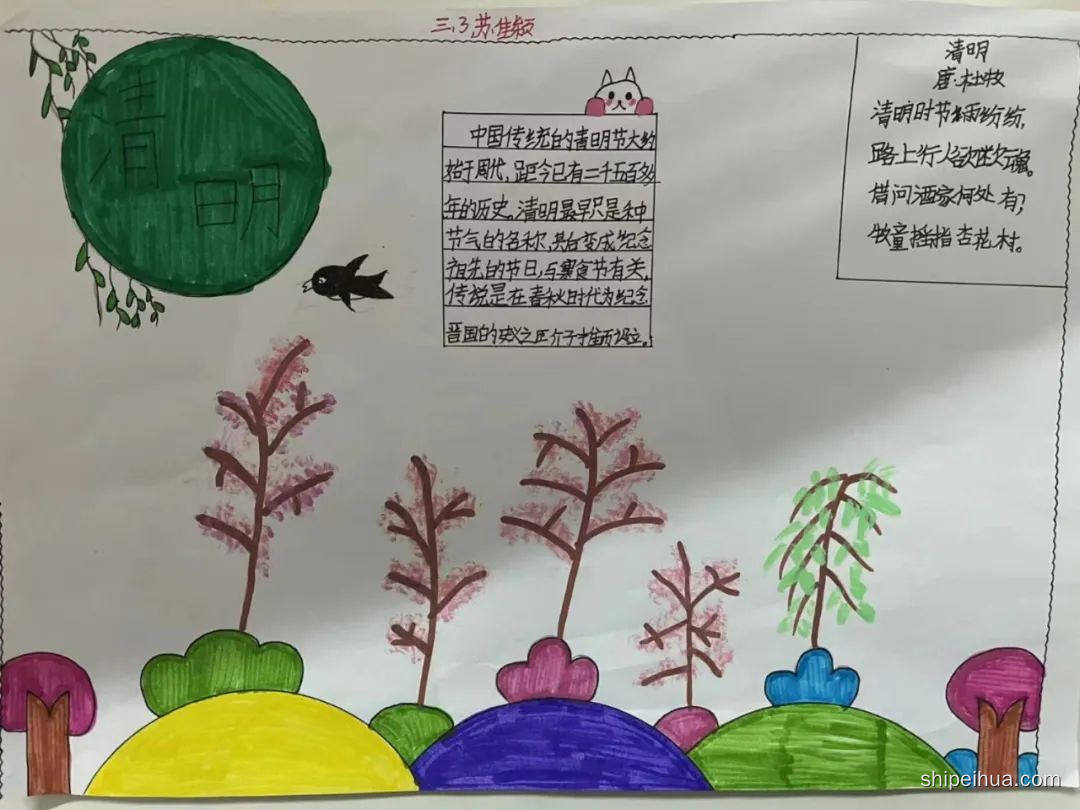 三.3.苏佳颖
清
明
中国传统的清明节大约
始于周代,距今已有二千五百多
年的历史。清明最早只是种
节气的名称,其变成纪念
祖先的节日,与寒食节有关,
传说是在春秋时代为纪念
晋国的之臣介子推而设立。
清明
唐·杜牧
清明时节雨纷纷,
路上行人欲断魂。
借问酒家何处有?
牧童摇指杏花村。
shipeihua.com